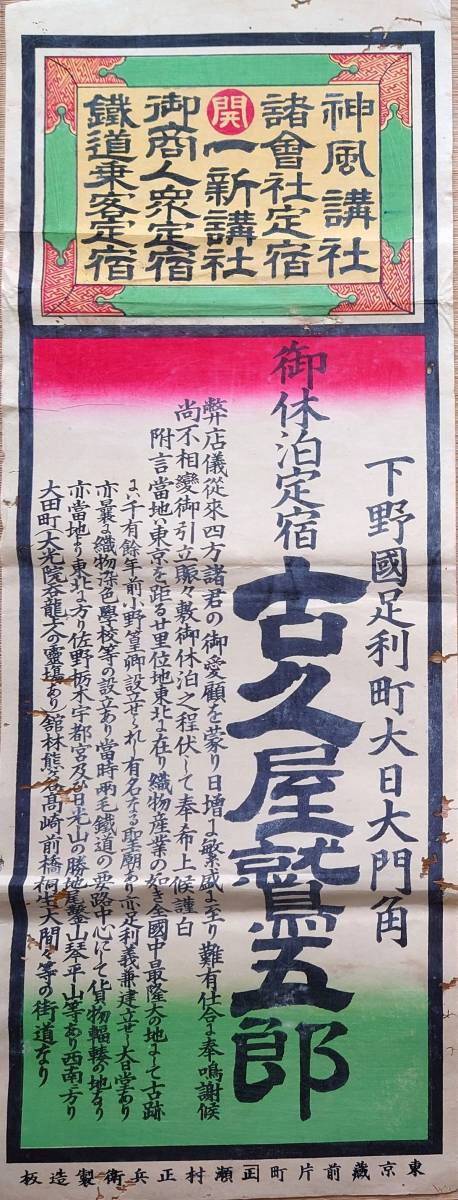 神風講社
諸會社定宿
開
一新講社
御商人衆定宿
鐵道乗客定宿
下野國足利町大日大門角
御休泊定宿
古久屋鷲五郎
弊店儀從來四方諸君の御愛顧を蒙り日增よ繁盛よ至り難有仕合よ奉鳴謝候
尚不相變御引立賑々敷御休泊之程伏して奉希上候謹白
附言當地ハ東京を距る廿里位地東北よ在り織物産業の如き全國中最隆大の地よして古跡
よハ千有餘年前小野篁卿設立せられし有名なる聖廟あり亦足利義兼建立せし大日堂あり
亦曩よ織物染色學校等の設立あり當時兩毛鐵道の要路中心にして貨物輻輳の地なり
亦當地より東北よ方り佐野栃木宇都宮及び日光山の勝地尾鑿山琴平山等あり西南よ方り
大田町(大光院呑龍上人の靈場あり)舘林熊谷高崎前橋桐生大間々等の街道なり
東京藏前片町正瀬村正兵衛製造板